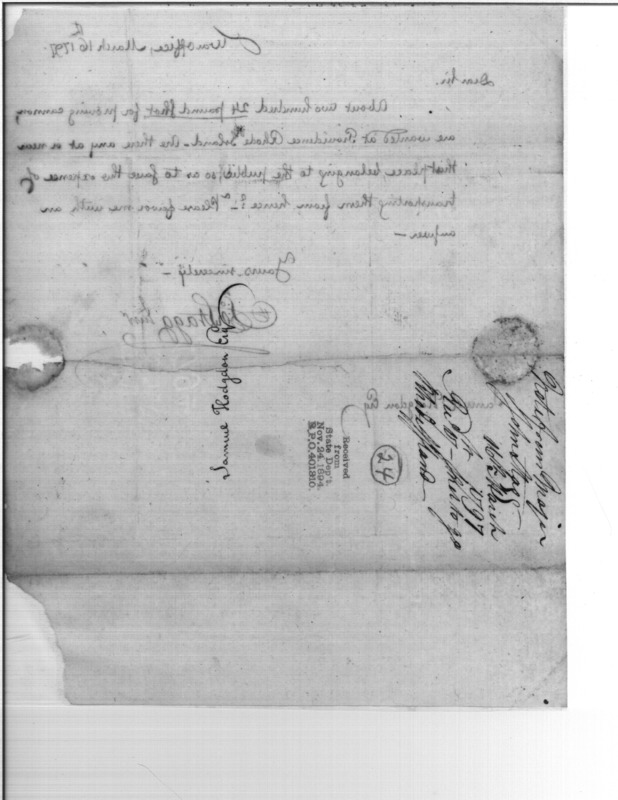 War office, March 16th 1797.
Dear Sir.
About two hundred 24 pound shot for proving cannon,
are wanted at Providence Rhode Island. Are there any at or near
that place belonging to the public, so as to save the expence of
transporting them from hence? Please favor me with an
answer —
Yours sincerely
Jn Stagg Junr
Samuel Hodgdon Esq
Samuel Hodgdon Esq
Received
from
State Dep't.
Nov. 24, 1894.
R.P.O. 401810.
24
Note from Major
John Stagg
16th March
1797